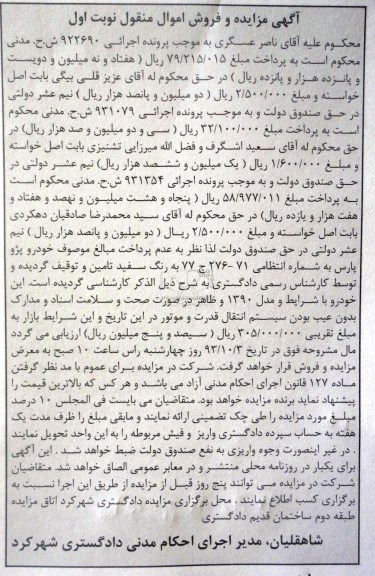 آگهی مزایده و فروش اموال منقول نوبت اول
محکوم علیه آقای ناصر عسگری به موجب پرونده اجرائی ۹۲۲۶۹۰ ش.ح. مدنی
محکوم است به پرداخت مبلغ ۷۹/۲۱۵/۰۱۵ ریال ( هفتاد و نه میلیون و دویست
و پانزده هزار و پانزده ریال ) در حق محکوم له آقای عزیز قلی بیگی بابت اصل
خواسته و مبلغ ۲/۵۰۰/۰۰۰ ریال ( دو میلیون و پانصد هزار ریال ) نیم عشر دولتی
در حق صندوق دولت و به موجب پرونده اجرائی ۹۳۱۰۷۹ ش.ح. مدنی محکوم
است به پرداخت مبلغ ۳۲/۱۰۰/۰۰۰ ریال ( سی و دو میلیون و صد هزار ریال) در
حق محکوم له آقای سعید اشگرف و فضل الله میرزایی تشنیزی بابت اصل خواسته
و مبلغ ۱/۶۰۰/۰۰۰ ریال ( یک میلیون و ششصد هزار ریال) نیم عشر دولتی در
حق صندوق دولت و به موجب پرونده اجرائی ۹۳۱۳۵۴ ش.ح. مدنی محکوم است
به پرداخت مبلغ ۵۸/۹۷۷/۰۱۱ ریال ( پنجاه و هشت میلیون و نهصد و هفتاد و
هفت هزار و یازده ریال) در حق محکوم له آقای سید محمدرضا صادقیان دهکردی
بابت اصل خواسته و مبلغ ۲/۵۰۰/۰۰۰ ریال ( دو میلیون و پانصد هزار ریال ) نیم
عشر دولتی در حق صندوق دولت لذا نظر به عدم پرداخت مبالغ موصوف خودرو پژو
پارس به شماره انتظامی ۷۱ -۲۷۶ ج ۷۷ به رنگ سفید تامین و توقیف گردیده و
توسط کارشناس رسمی دادگستری به شرح ذیل الذکر کارشناسی گردیده است. این
خودرو با شرایط و مدل ۱۳۹۰ و ظاهر در صورت صحت و سلامت اسناد و مدارک
بدون عیب بودن سیستم انتقال قدرت و موتور در این تاریخ و این شرایط بازار به
مبلغ تقریبی ۳۰۵/۰۰۰/۰۰۰ ریال ( سیصد و پنج میلیون ریال) ارزیابی می گردد
مال مشروحه فوق در تاریخ ۹۳/۱۰/۳ روز چهارشنبه راس ساعت ۱۰ صبح به معرض
مزایده و فروش قرار خواهد گرفت. شرکت در مزایده برای عموم با مد نظر گرفتن
ماده ۱۲۷ قانون اجرای احکام مدنی آزاد می باشد و هر کس که بالاترین قیمت را
پیشنهاد نماید برنده مزایده خواهد بود. متقاضیان می بایست فی المجلس ۱۰ درصد
مبلغ مورد مزایده را طی چک تضمینی ارائه نمایند و مابقی مبلغ را ظرف مدت یک
هفته به حساب سپرده دادگستری واریز و فیش مربوطه را به این واحد تحویل نمایند
. در غیر اینصورت وجوه واریزی به نفع صندوق دولت ضبط خواهد شد . این آگهی
برای یکبار در روزنامه محلی منتشر و در معابر عمومی الصاق خواهد شد. متقاضیان
شرکت در مزایده می توانند پنج روز قبل از مزایده از طریق این اجرا نسبت به
برگزاری کسب اطلاع نمایند . محل برگزاری مزایده دادگستری شهرکرد اتاق مزایده
طبقه دوم ساختمان قدیم دادگستری
شاهقلیان، مدیر اجرای احکام مدنی دادگستری شهرکرد